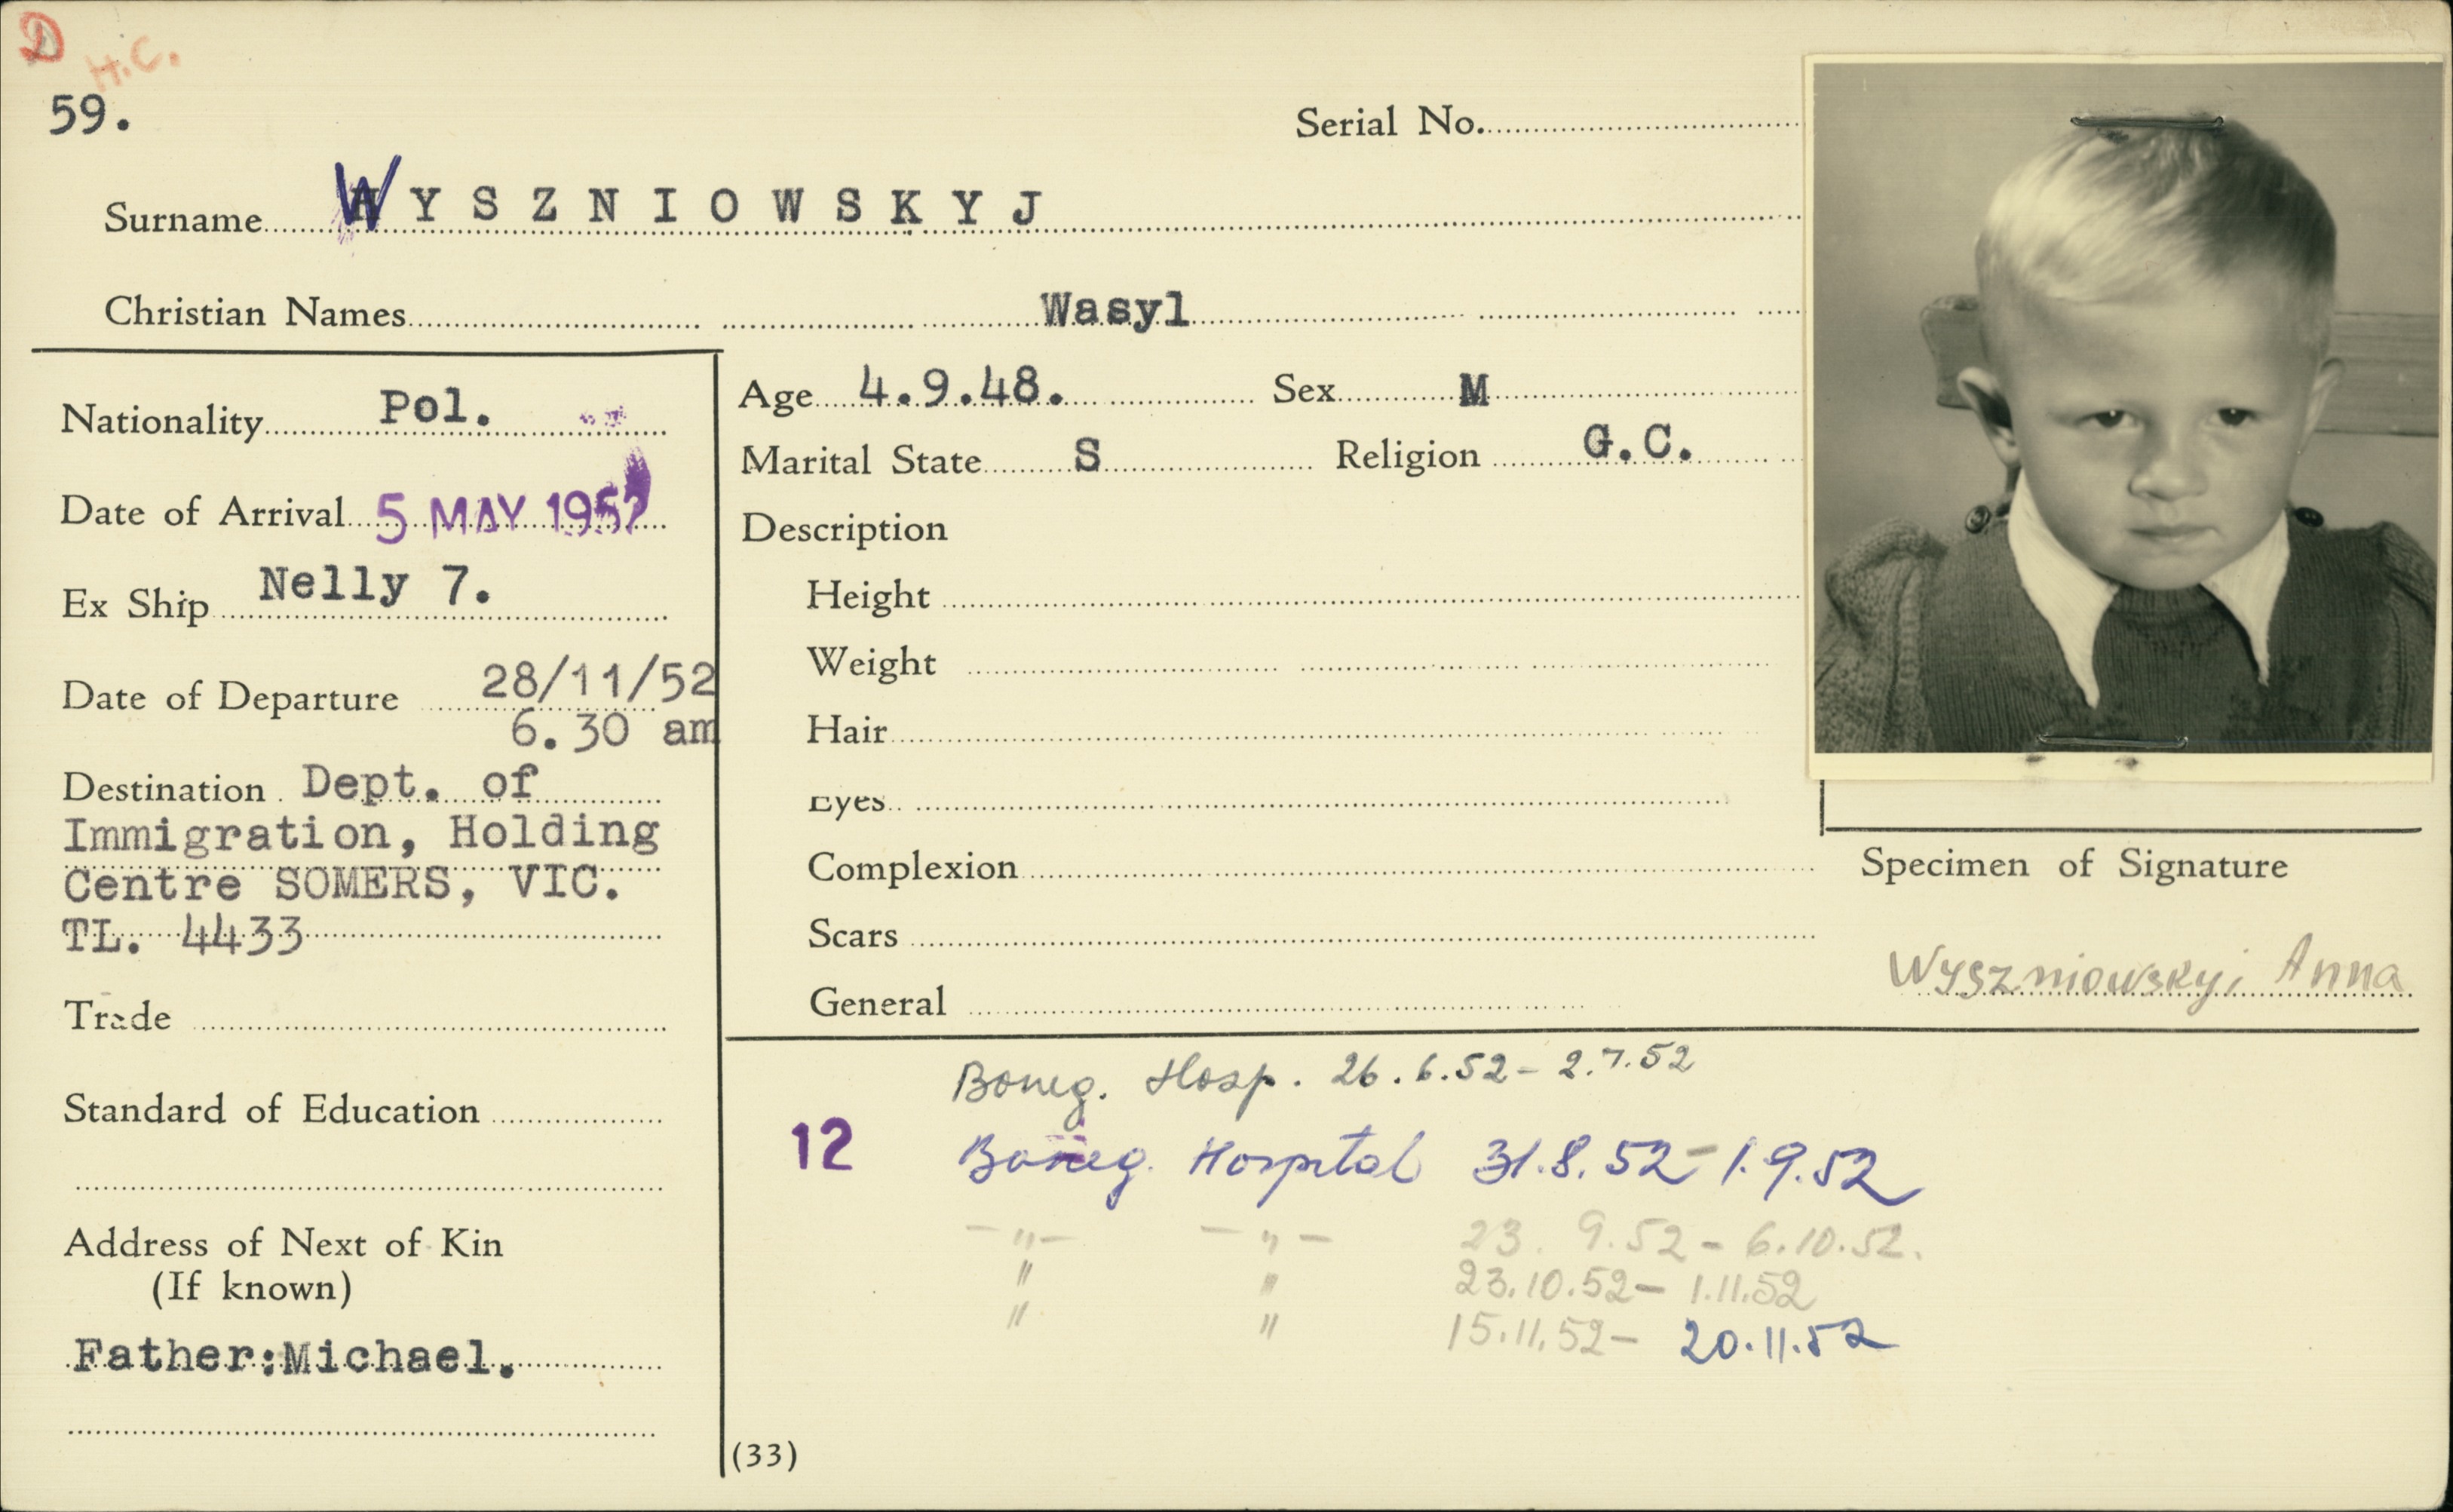 D
H.C.
59.
Serial No.
Surname WYSZNIOWSKYJ
Christian Names Wasyl
Nationality Pol.
Date of Arrival 5 MAY 1952
Ex Ship Nelly 7.
Date of Departure 28/11/52
6.30 am
Destination Dept. of
Immigration, Holding
Centre SOMERS, VIC.
TL. 4433
Trade
Standard of Education
Address of Next of Kin
(If known)
Father:Michael.
Age 4.9.48. Sex M
Marital State S Religion G.C.
Description
Height
Weight
Hair
Eyes
Complexion
Scars
General
Specimen of Signature
Wyszniowskyj Anna
Boneg. Hosp. 26.6.52 - 2.7.52
12 Boneg. Hospital 31.8.52 - 1.9.52
-"- -"- 23. 9.52 - 6.10.52.
" " 23.10.52 - 1.11.52
" " 15.11.52 - 20.11.52
(33)